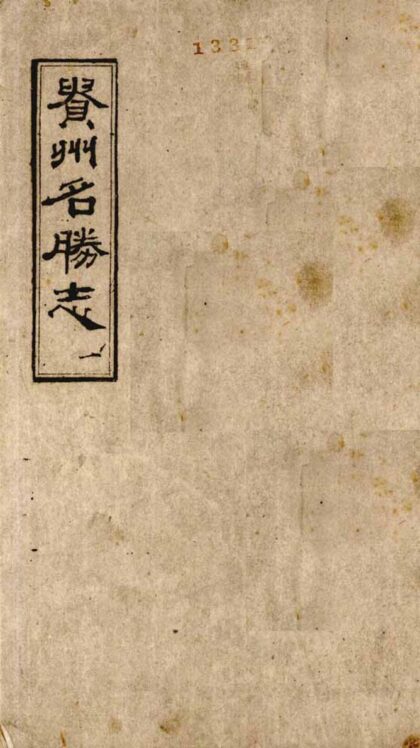 133
貴州名勝志
一